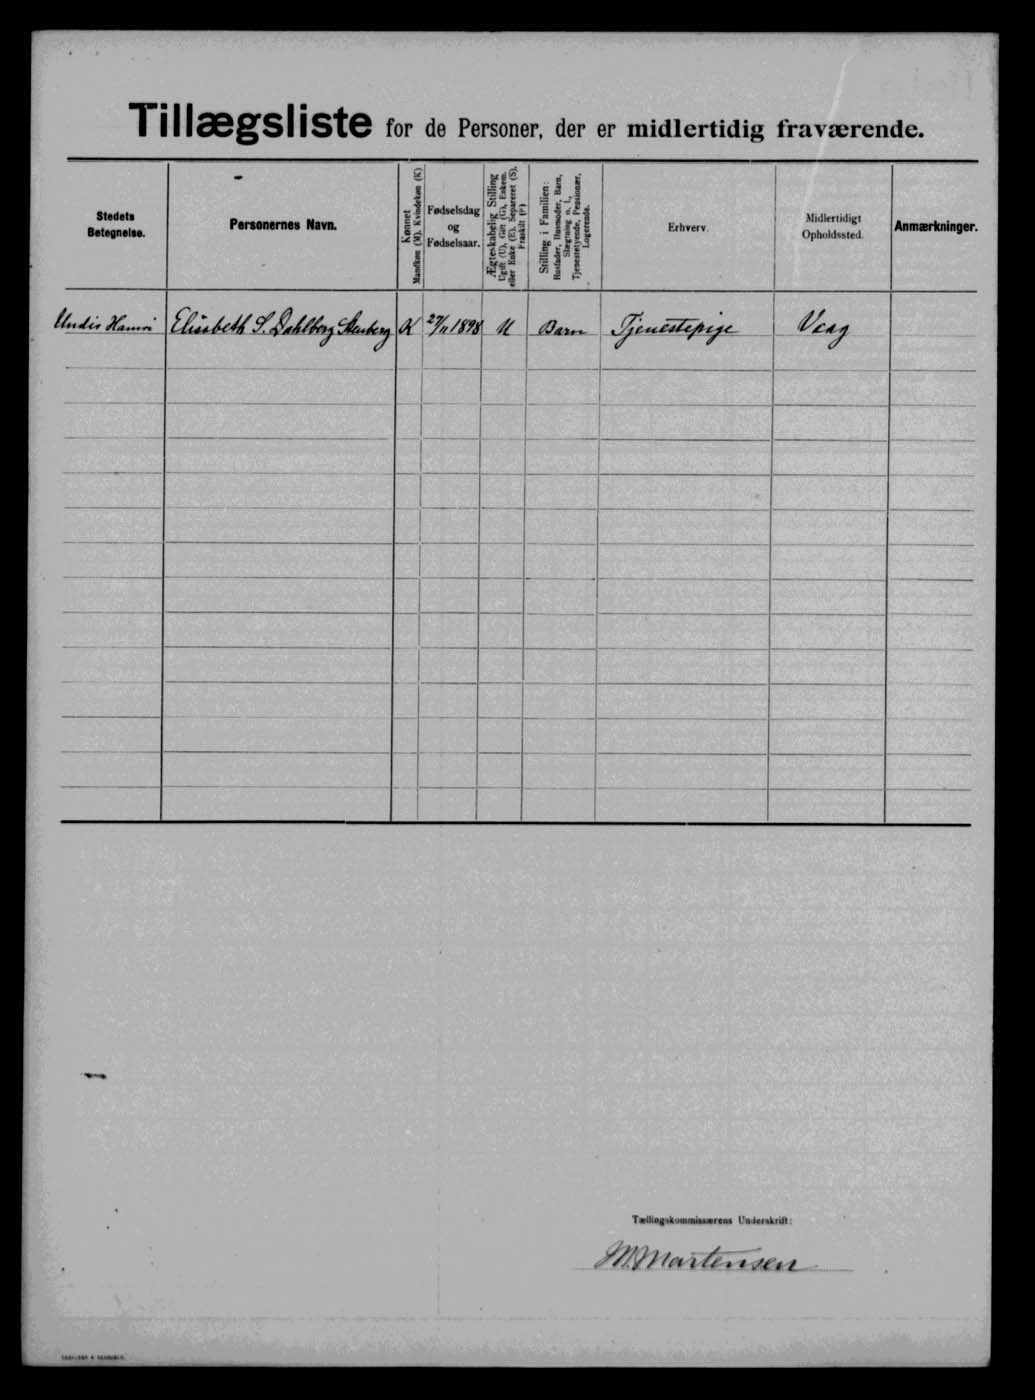 Tillægsliste for de Personer, der er midlertidig fraværende.
Stedets Betegnelse.
Personernes Navn.
Kønnet
Mandkøn (M), Kvindekøn (K)
Fødselsdag
og
Fødselsaar.
Ægteskabelig Stilling
Ugift (U), Gift (G), Enkem.
eller Enke (E), Separeret (S),
Fraskilt (F)
Stilling i Familien:
Husfader, Husmoder, Barn,
Slægtning o. l.,
Tjenestetyende, Pensionær,
Logerende.
Erhverv.
Midlertidigt
Opholdssted.
Anmærkninger.
Undir Hamri Elisabeth S. Dahlberg Stenberg K 27/11 1898 U Barn Tjenestepige Vaag
Tællingskommissærens Underskrift:
M. Martensen